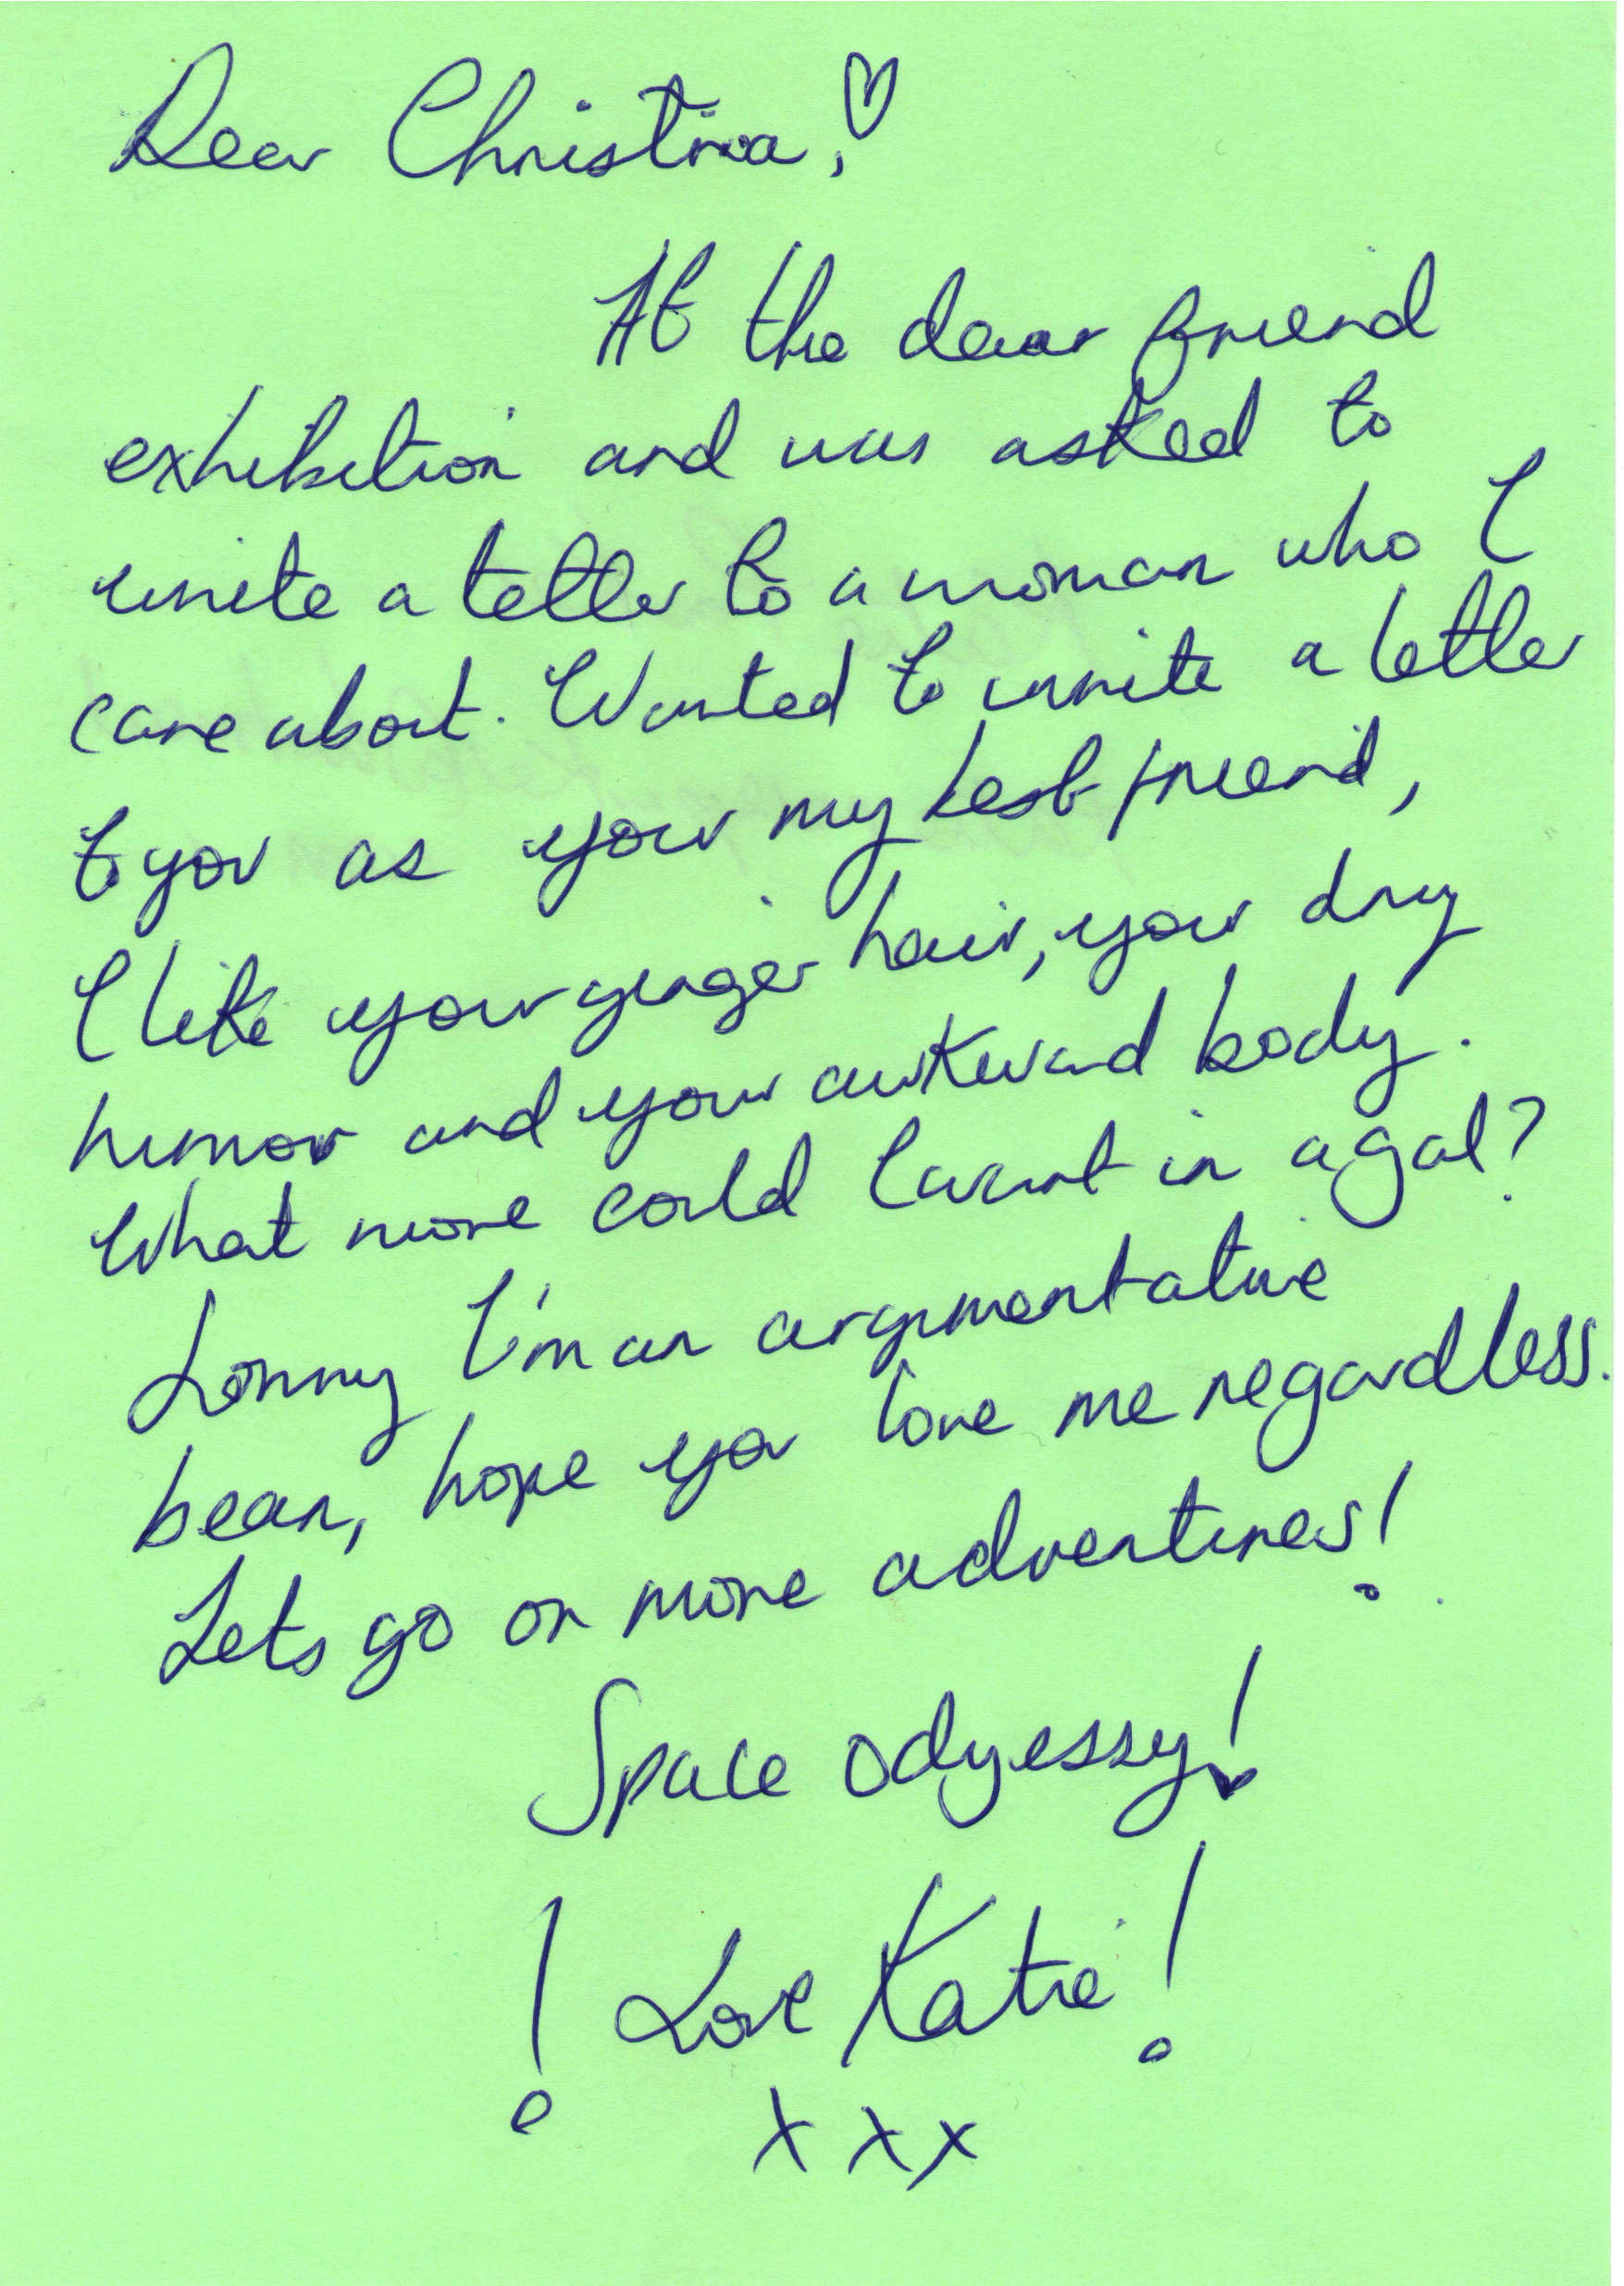 Dear Christina,
At the dear friend
exhibition and was asked to
write a letter to a woman who I
care about. Wanted to write a letter
to you as your my best friend,
I like your ginger hair, your dry
humor and your awkward body.
What more could I want in a gal?
Sorry I'm an argumentative
bean, hope you love me regardless.
Lets go on more adventures!
Space odyessy!
! Love Katie!
x x x